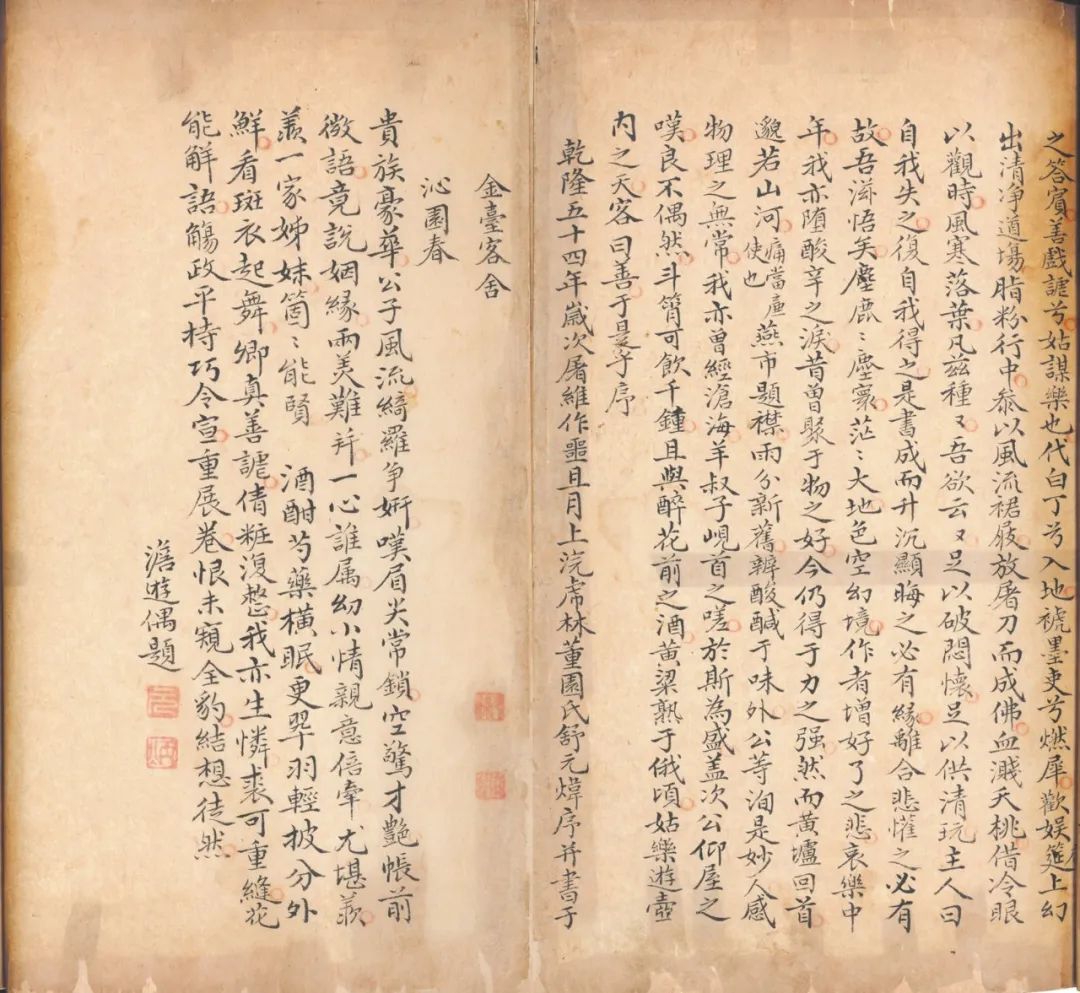 之答賓善戲謔兮姑謀樂也代白丁兮入地褫墨吏兮燃犀歡娱筵上幻
出清净道場脂粉行中叅以風流裙屐放屠刀而成佛血濺夭桃借冷眼
以觀時風寒落葉凡兹種〻吾欲云〻足以破悶懷足以供清玩主人曰
自我失之復自我得之是書成而升沉顯晦之必有緣離合悲懽之必有
故吾滋悟矣塵鹿〻塵寰茫〻大地色空幻境作者增好了之悲哀樂中
年我亦堕酸辛之淚昔曾聚于物之好今仍得于力之强然而黄壚回首
邈若山河痛當應使也燕市題襟雨分新舊辨酸醎于味外公等洵是妙人感
物理之無常我亦曾經滄海羊叔子峴首之嗟於斯為盛盖次公仰屋之
嘆良不偶然斗筲可飲千鍾且與醉花前之酒黄粱熟于俄頃姑樂遊壺
内之天客曰善于是乎序
乾隆五十四年嵗次屠維作噩且月上浣虎林董園氏舒元煒序并書于
金臺客舍
沁園春
貴族豪華公子風流綺羅争妍嘆眉尖常鎖空驚才艷帳前
微語竟説姻緣兩美難并一心誰属幼小情親意倍牽尤堪羡
羨一家姊妹箇〻能賢　酒酣芍藥横眠更翠羽輕披分外
鮮看斑衣起舞卿真善謔倩粧復整我亦生憐裘可重縫花
能解語觴政平持巧令宣重展卷恨未窺全豹結想徒然
澹遊偶題